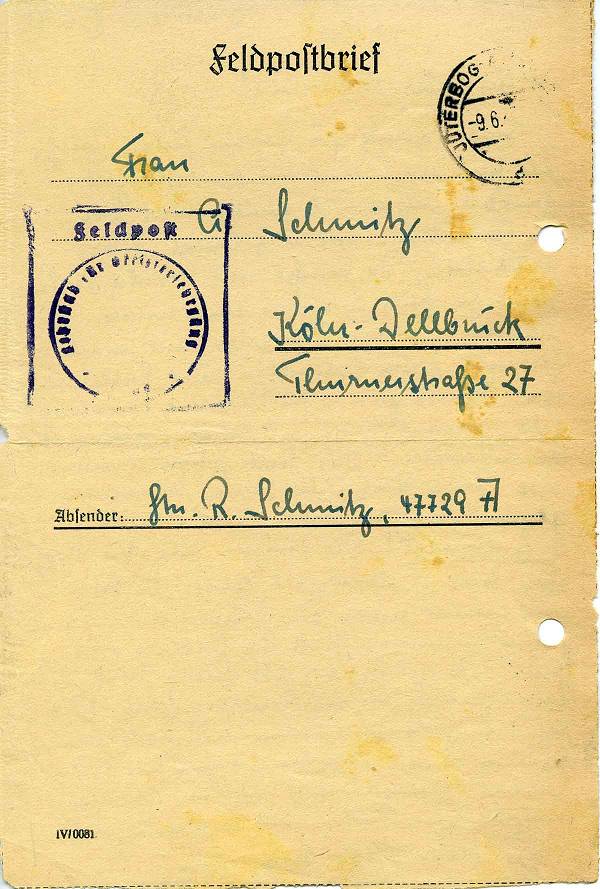 Feldpostbrief
JÜTERBOG
-9.6.
Frau
A. Schmitz
Feldpost
Köln-Dellbrück
Thurnerstraße 27
Absender: R. Schmitz, 47729 A
IV/0081.